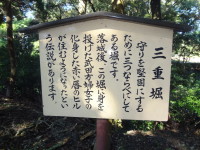 三重堀
守りを堅固にする
ために三つならべて
ある堀です。
落城後、この堀に身を
投げた武田方婦女子の
化身した赤い唇のヒル
が住むようになったとい
う伝説があります。